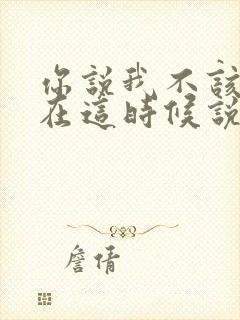 你說我不該
在這時候說
詹倩